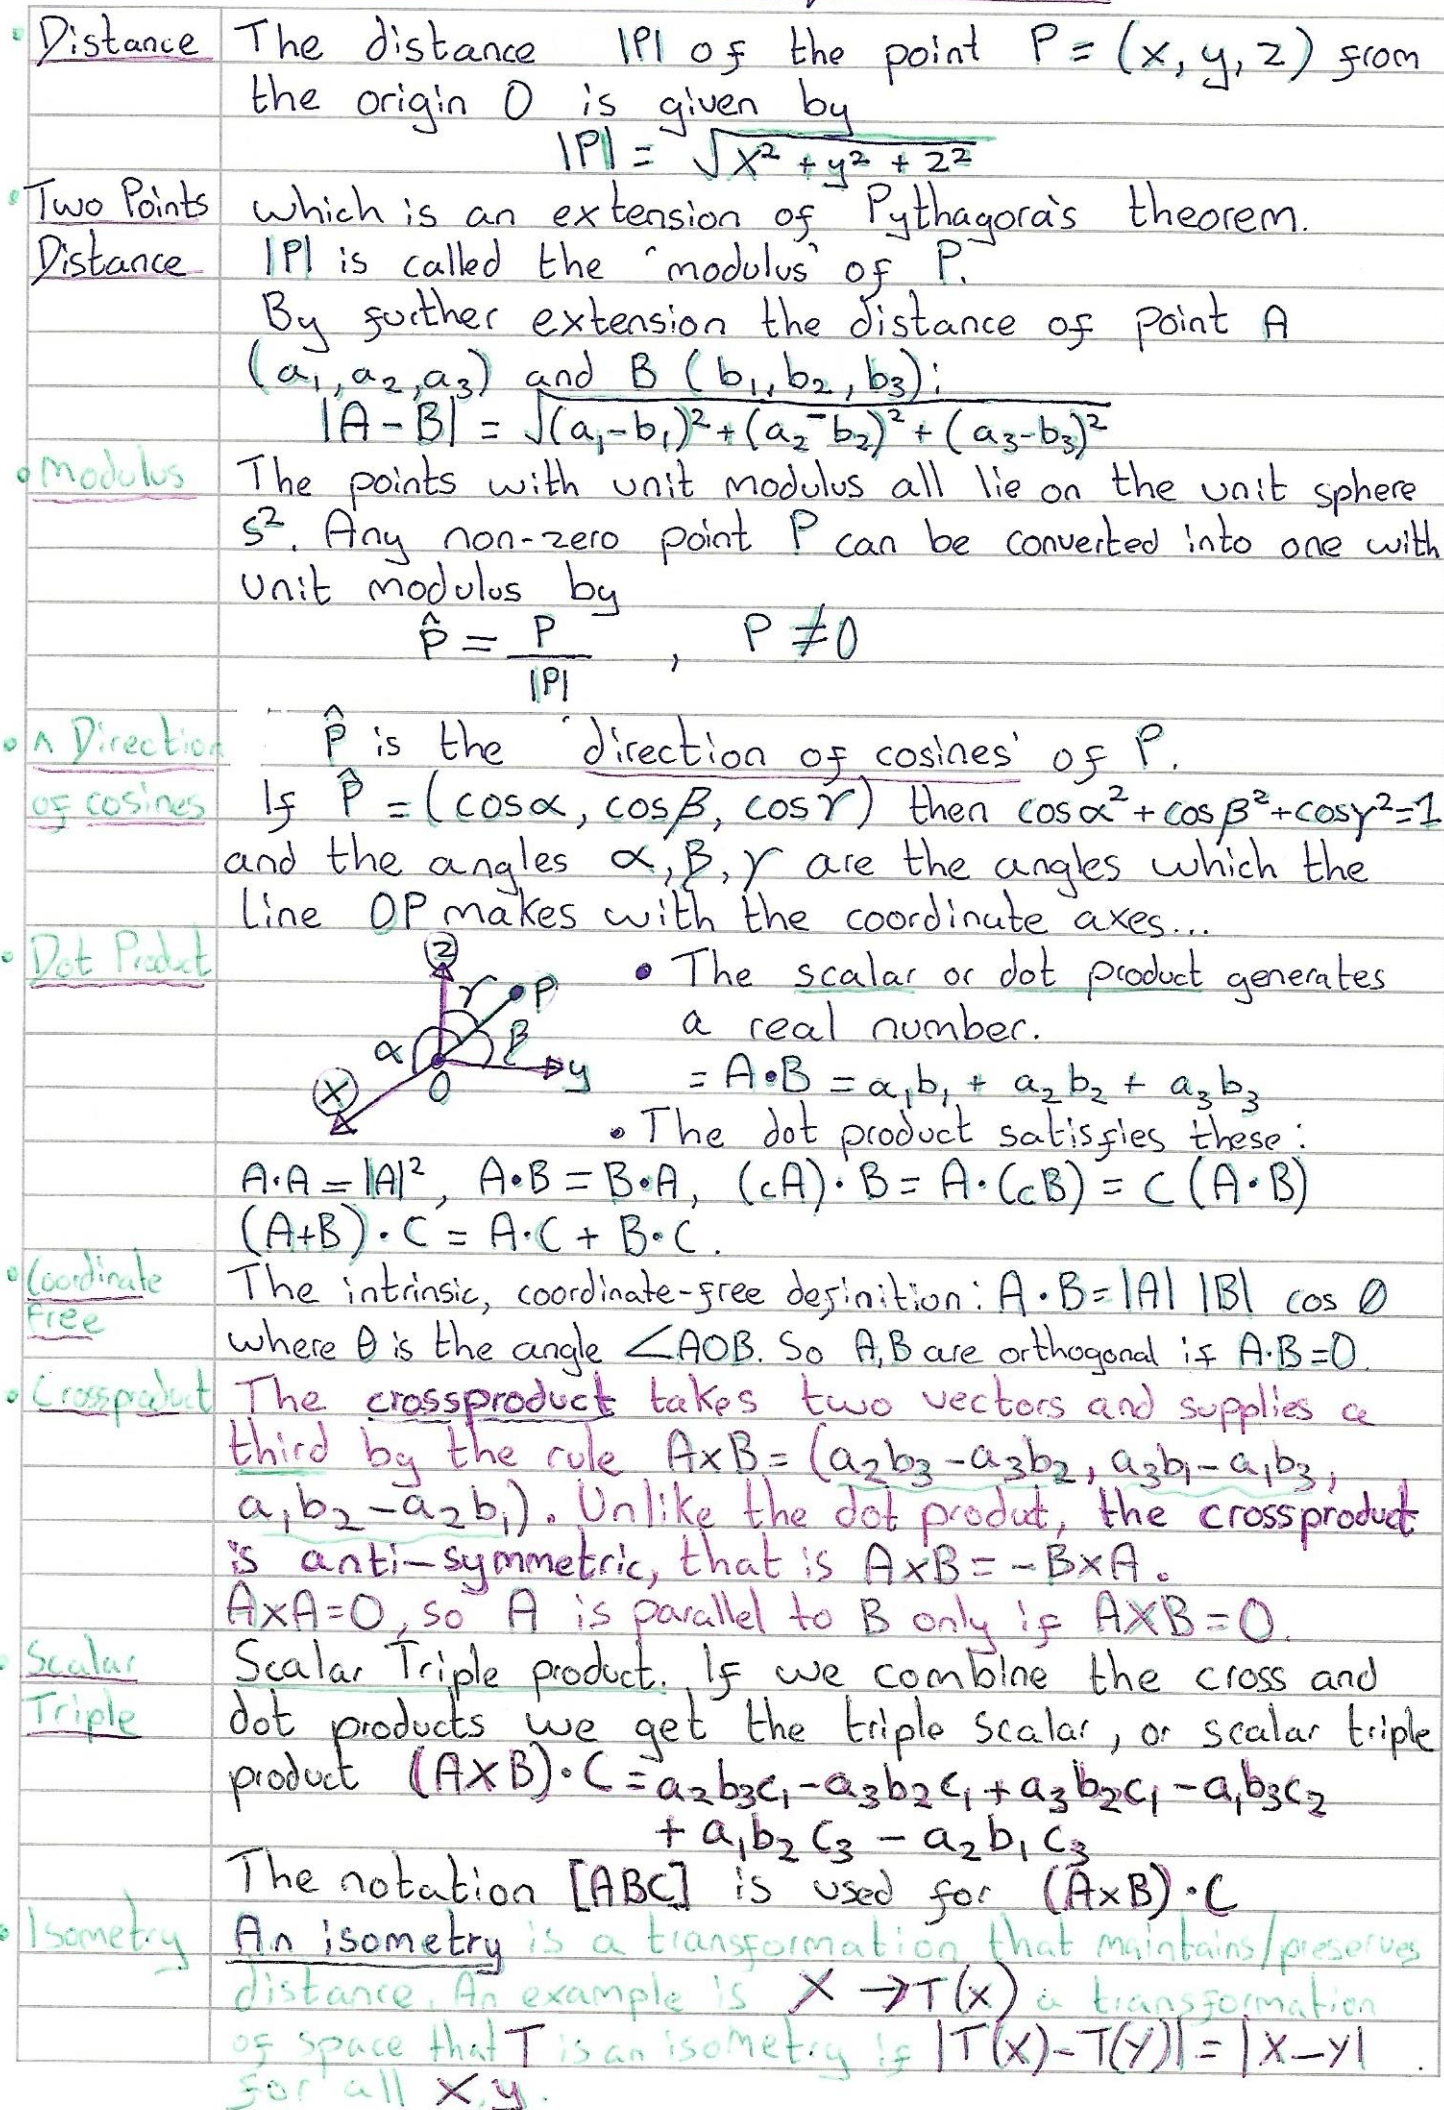 Distance The distance |P| of the point P = (x, y, z) from
the origin O is given by
|P| = √x² + y² + z²
Two Points which is an extension of Pythagora's theorem.
Distance |P| is called the 'modulus' of P.
By further extension the distance of point A
(a₁, a₂, a₃) and B (b₁, b₂, b₃):
|A - B| = √(a₁-b₁)² + (a₂-b₂)² + (a₃-b₃)²
Modulus The points with unit modulus all lie on the unit sphere
S². Any non-zero point P can be converted into one with
unit modulus by
P̂ = P / |P| , P ≠ 0
^ Direction P̂ is the 'direction of cosines' of P.
of cosines If P̂ = (cosα, cosβ, cosγ) then cosα² + cosβ² + cosγ² = 1
and the angles α, β, γ are the angles which the
line OP makes with the coordinate axes...
Dot Product • The scalar or dot product generates
a real number.
= A•B = a₁b₁ + a₂b₂ + a₃b₃
• The dot product satisfies these:
z
γ P
α β
x O y
A·A = |A|², A•B = B•A, (cA)·B = A·(cB) = C(A·B)
(A+B)·C = A·C + B·C.
Coordinate The intrinsic, coordinate-free definition: A·B = |A| |B| cos θ
free where θ is the angle ∠AOB. So A, B are orthogonal if A·B=0.
Crossproduct The crossproduct takes two vectors and supplies a
third by the rule A×B = (a₂b₃-a₃b₂, a₃b₁-a₁b₃,
a₁b₂-a₂b₁). Unlike the dot produt, the crossproduct
is anti-symmetric, that is A×B = -B×A.
A×A=0, so A is parallel to B only if A×B=0.
Scalar Scalar Triple product. If we combine the cross and
Triple dot products we get the triple scalar, or scalar triple
product (A×B)·C = a₂b₃c₁-a₃b₂c₁+a₃b₂c₁-a₁b₃c₂
+ a₁b₂c₃ - a₂b₁c₃
The notation [ABC] is used for (A×B)·C
Isometry An isometry is a transformation that maintains/preserves
distance. An example is X → T(x) a transformation
of space that T is an isometry if |T(X)-T(Y)| = |X-Y|
for all X, y.